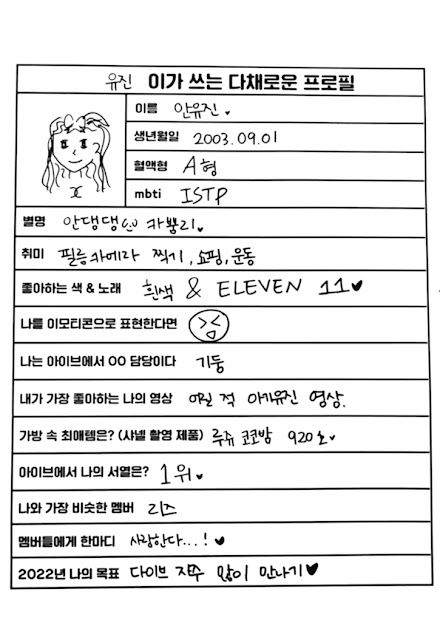 유진 이가 쓰는 다채로운 프로필
이름 안유진 ♥
생년월일 2003.09.01
혈액형 A형
mbti ISTP
별명 안댕댕 카뿔리♥
취미 필름카메라 찍기, 쇼핑, 운동
좋아하는 색 & 노래 흰색 & ELEVEN 11♥
나를 이모티콘으로 표현한다면
나는 아이브에서 OO 담당이다 기둥
내가 가장 좋아하는 나의 영상 어릴 적 아기유진 영상.
가방 속 최애템은? (샤넬 촬영 제품) 루쥬 코코밤 920호♥
아이브에서 나의 서열은? 1위♥
나와 가장 비슷한 멤버 리즈
멤버들에게 한마디 사랑한다...! ♥
2022년 나의 목표 다이브 자주 많이 만나기♥